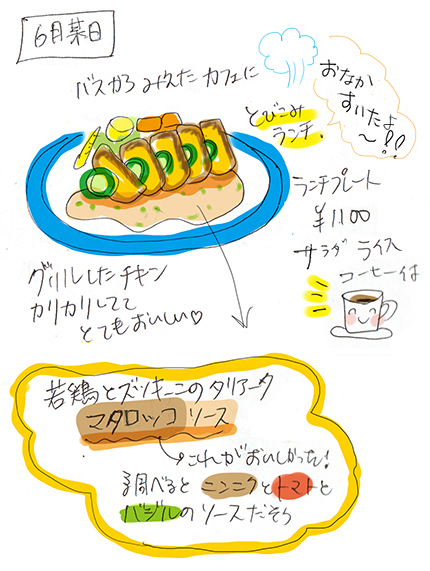 6月某日
バスから みえた カフェに
とびこみ
ランチ。
おなか
すいたよ
〜!!
ランチプレート
¥1100
サラダ ライス
コーヒーは
グリルしたチキン
カリカリしてて
とてもおいしい♡
若鶏とズッキーニのタリアータ
マタロッコ ソース
これがおいしかった!
調べると ニンニクとトマトと
バジルのソースだそう